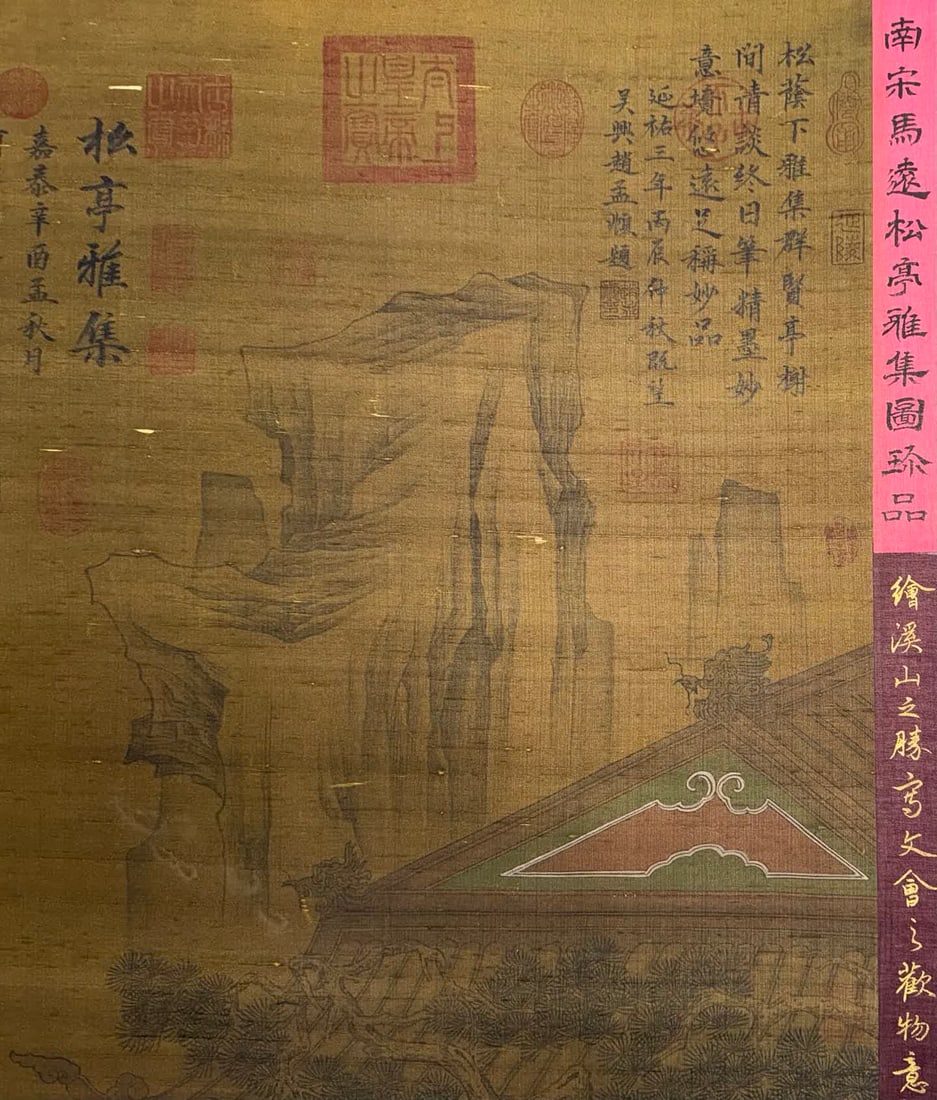 南宋馬遠松亭雅集圖珎品
繪溪山之勝寫文會之歡物意
松蔭下雅集群賢亭榭
間清談終日筆精墨妙
意境悠遠足稱妙品
延祐三年丙辰仲秋既望
吳興趙孟頫題
太上皇帝之寶
松亭雅集
嘉泰辛酉孟秋月